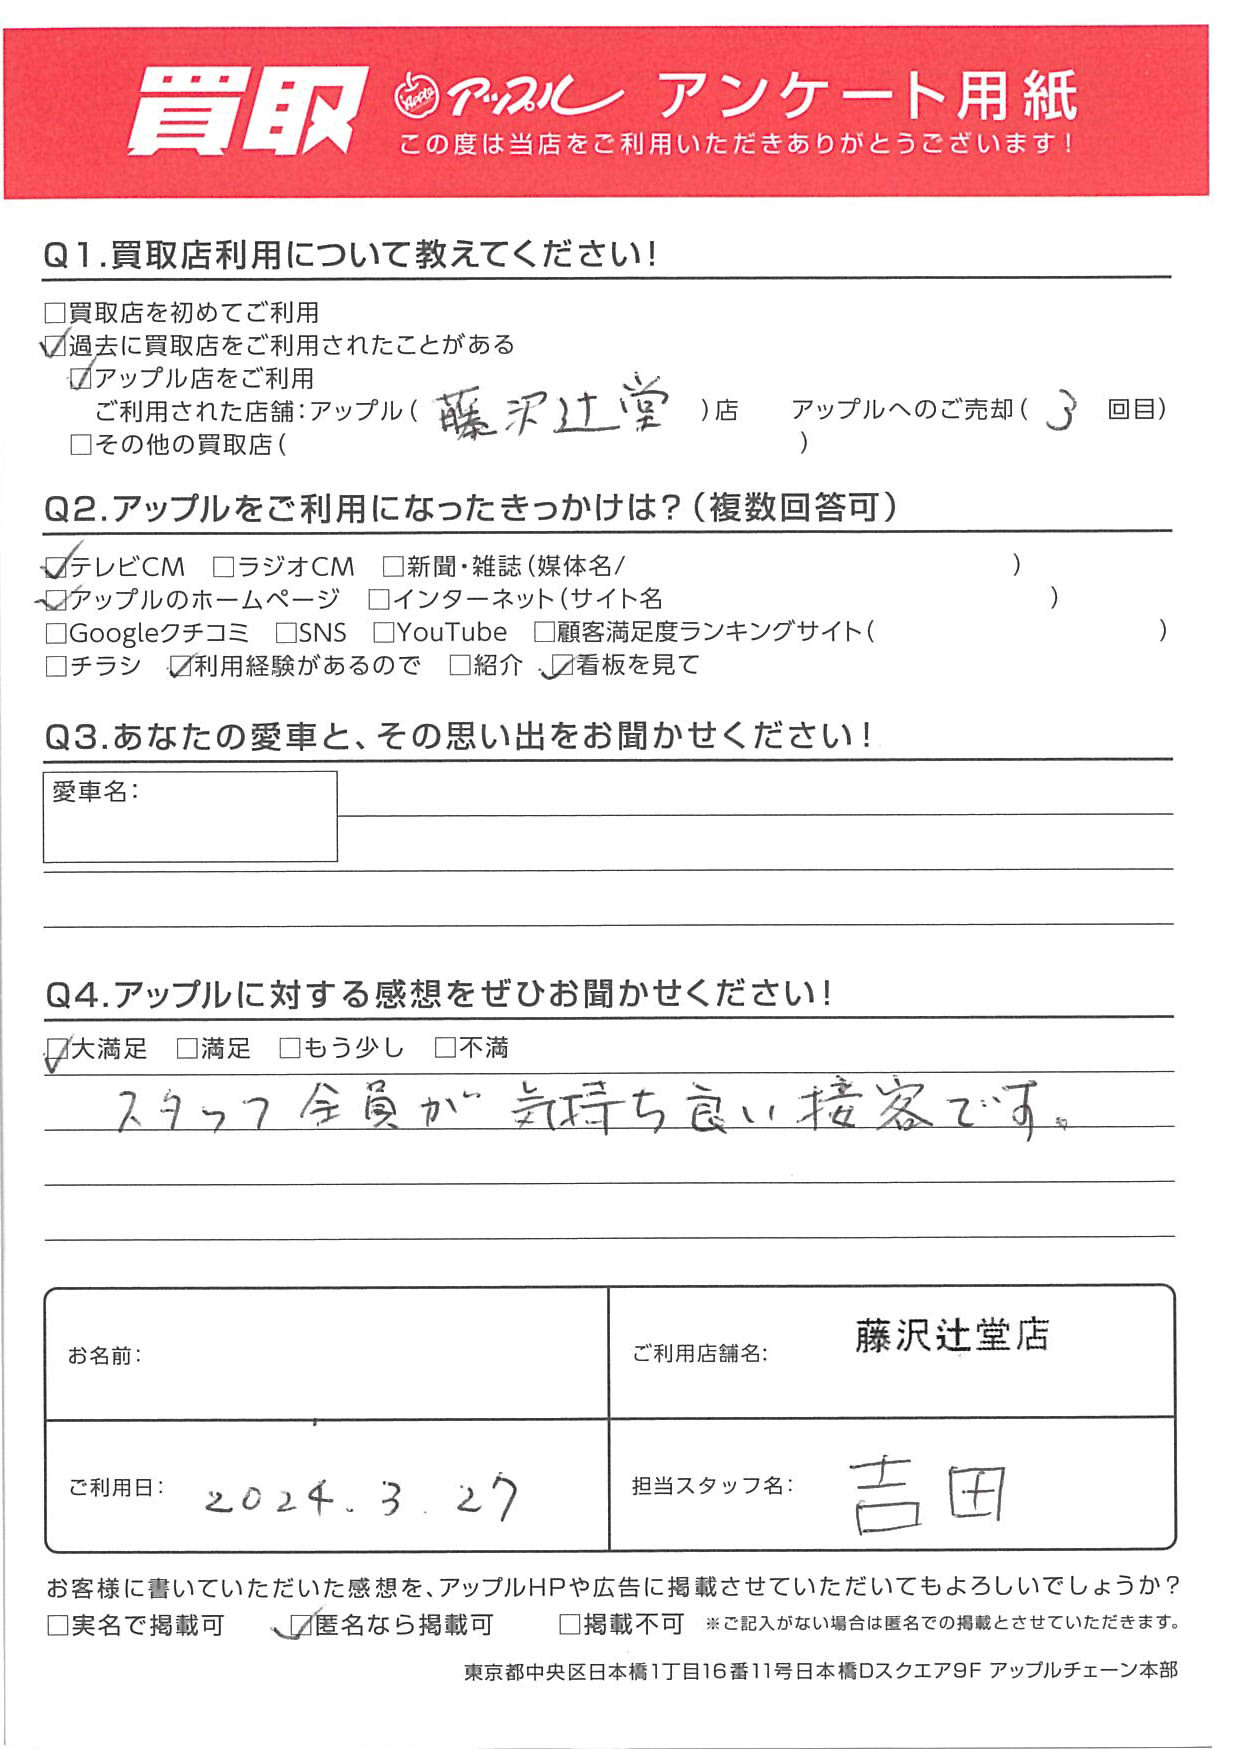 買取 アップル アンケート用紙
この度は当店をご利用いただきありがとうございます！
Q1.買取店利用について教えてください！
□買取店を初めてご利用
☑過去に買取店をご利用されたことがある
☑アップル店をご利用
ご利用された店舗：アップル（ 藤沢辻堂 ）店 アップルへのご売却（ 3 回目）
□その他の買取店（ ）
Q2.アップルをご利用になったきっかけは？（複数回答可）
☑テレビCM □ラジオCM □新聞・雑誌（媒体名/ ）
☑アップルのホームページ □インターネット（サイト名 ）
□Googleクチコミ □SNS □YouTube □顧客満足度ランキングサイト（ ）
□チラシ ☑利用経験があるので □紹介 ☑看板を見て
Q3.あなたの愛車と、その思い出をお聞かせください！
愛車名：
Q4.アップルに対する感想をぜひお聞かせください！
☑大満足 □満足 □もう少し □不満
スタッフ全員が気持ち良い接客です。
お名前：
ご利用店舗名： 藤沢辻堂店
ご利用日： 2024.3.27
担当スタッフ名： 吉田
お客様に書いていただいた感想を、アップルHPや広告に掲載させていただいてもよろしいでしょうか？
□実名で掲載可 ☑匿名なら掲載可 □掲載不可 ※ご記入がない場合は匿名での掲載とさせていただきます。
東京都中央区日本橋1丁目16番11号日本橋Dスクエア9F アップルチェーン本部